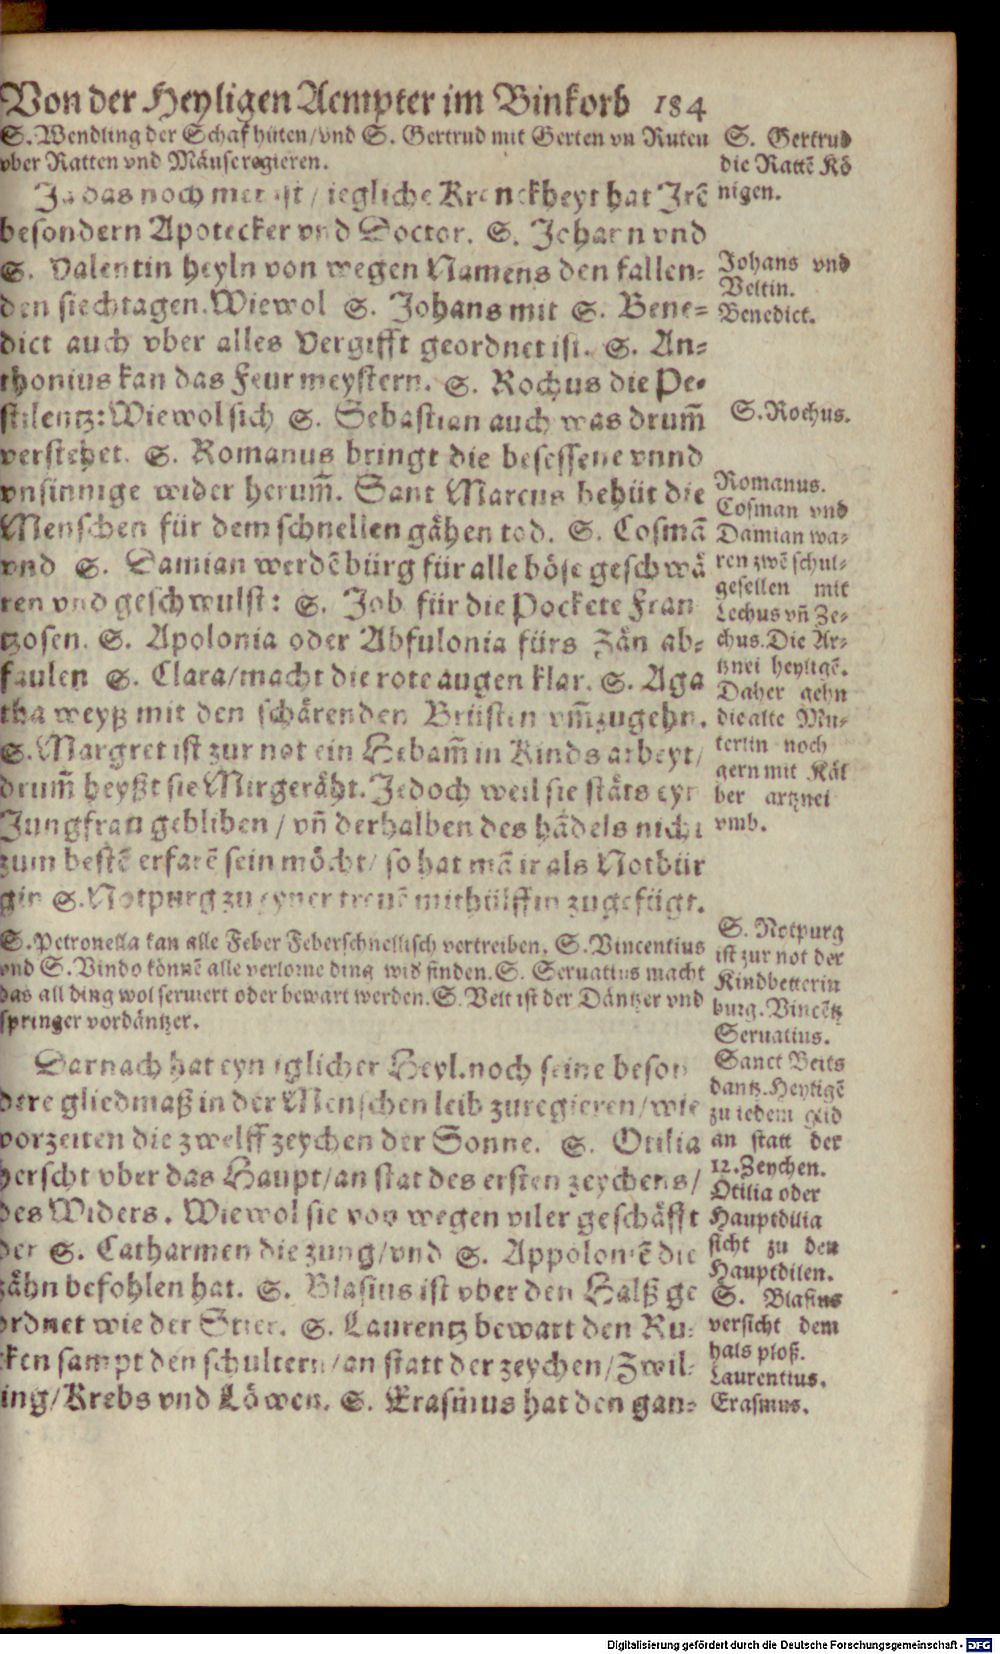 Von der Heyligen Aempter im Binkorb 184
S. Wendling der Schaf hüten/vnd S. Gertrud mit Gerten vñ Ruten
vber Ratten vnd Mäuse regieren.
Ja das noch mer ist / iegliche Kranckheyt hat Irē
besondern Apotecker vnd Doctor. S. Johan vnd
S. Valentin heyln von wegen Namens den fallen-
den siechtagen. Wiewol S. Johans mit S. Bene-
dict auch vber alles Vergifft geordnet ist. S. An-
thonius kan das Feur meystern. S. Rochus die Pe-
stilentz: Wiewol sich S. Sebastian auch was drum̄
verstehet. S. Romanus bringt die besessene vnnd
vnsinnige wider herum̄. Sant Marcus behüt die
Menschen für dem schnellen gähen tod. S. Cosmā
vnd S. Damian werdē bürg für alle böse geschwä
ren vnd geschwulst: S. Job für die Pockete Fran
tzosen. S. Apolonia oder Abfulonia fürs Zän ab-
faulen S. Clara/macht die rote augen klar. S. Aga
tha weyß mit den schärenden Brüsten vm̄zugehn.
S. Margret ist zur not ein Hebam̄ in Kinds arbeyt/
drum̄ heyßt sie Mirgeräht. Jedoch weil sie stäts eyn
Jungfrau gebliben / vñ derhalben des hādels nicht
zum bestē erfarē sein möcht/ so hat mā ir als Notbür
gin S. Notpurg zu eyner treuē mithülffin zugefügt.
S. Petronella kan alle Feber Feberschnellisch vertreiben. S. Vincentius
vnd S. Vindo könnē alle verlorne ding wid finden. S. Seruatius macht
das all ding wol seruiert oder bewart werden. S. Veit ist der Däntzer vnd
springer vordäntzer.
Darnach hat eyn iglicher Heyl. noch seine beson
dere gliedmaß in der Menschen leib zuregieren/wie
vorzeiten die zwelff zeychen der Sonne. S. Otilia
herscht vber das Haupt/an stat des ersten zeychens/
des Widers. Wiewol sie von wegen viler geschäfft
der S. Catharinen die zung/vnd S. Appoloniē die
zähn befohlen hat. S. Blasius ist vber den Halß ge
ordnet wie der Stier. S. Laurentz bewart den Ru-
cken sampt den schultern/an statt der zeychen/Zwil-
ling/Krebs vnd Löwen. S. Erasmus hat den gan-
S. Gertrud
die Rattē Kö
nigen.
Johans vnd
Veltin.
Benedict.
S. Rochus.
Romanus.
Cosman vnd
Damian wa-
ren zwē schul-
gesellen mit
Lechus vñ Ze-
chus. Die Ar-
tznei heyligē.
Daher gehn
die alte Mu-
terlin noch
gern mit Käl
ber artznei
vmb.
S. Notpurg
ist zur not der
Kindbetterin
burg. Vincētz
Seruatius.
Sanct Veits
dantz. Heyligē
zu iedem glid
an statt der
12. Zeychen.
Otilia oder
Hauptdilia
sicht zu den
Hauptdilen.
S. Blasius
versicht dem
hals ploß.
Laurentius.
Erasmus.
Digitalisierung gefördert durch die Deutsche Forschungsgemeinschaft - DFG